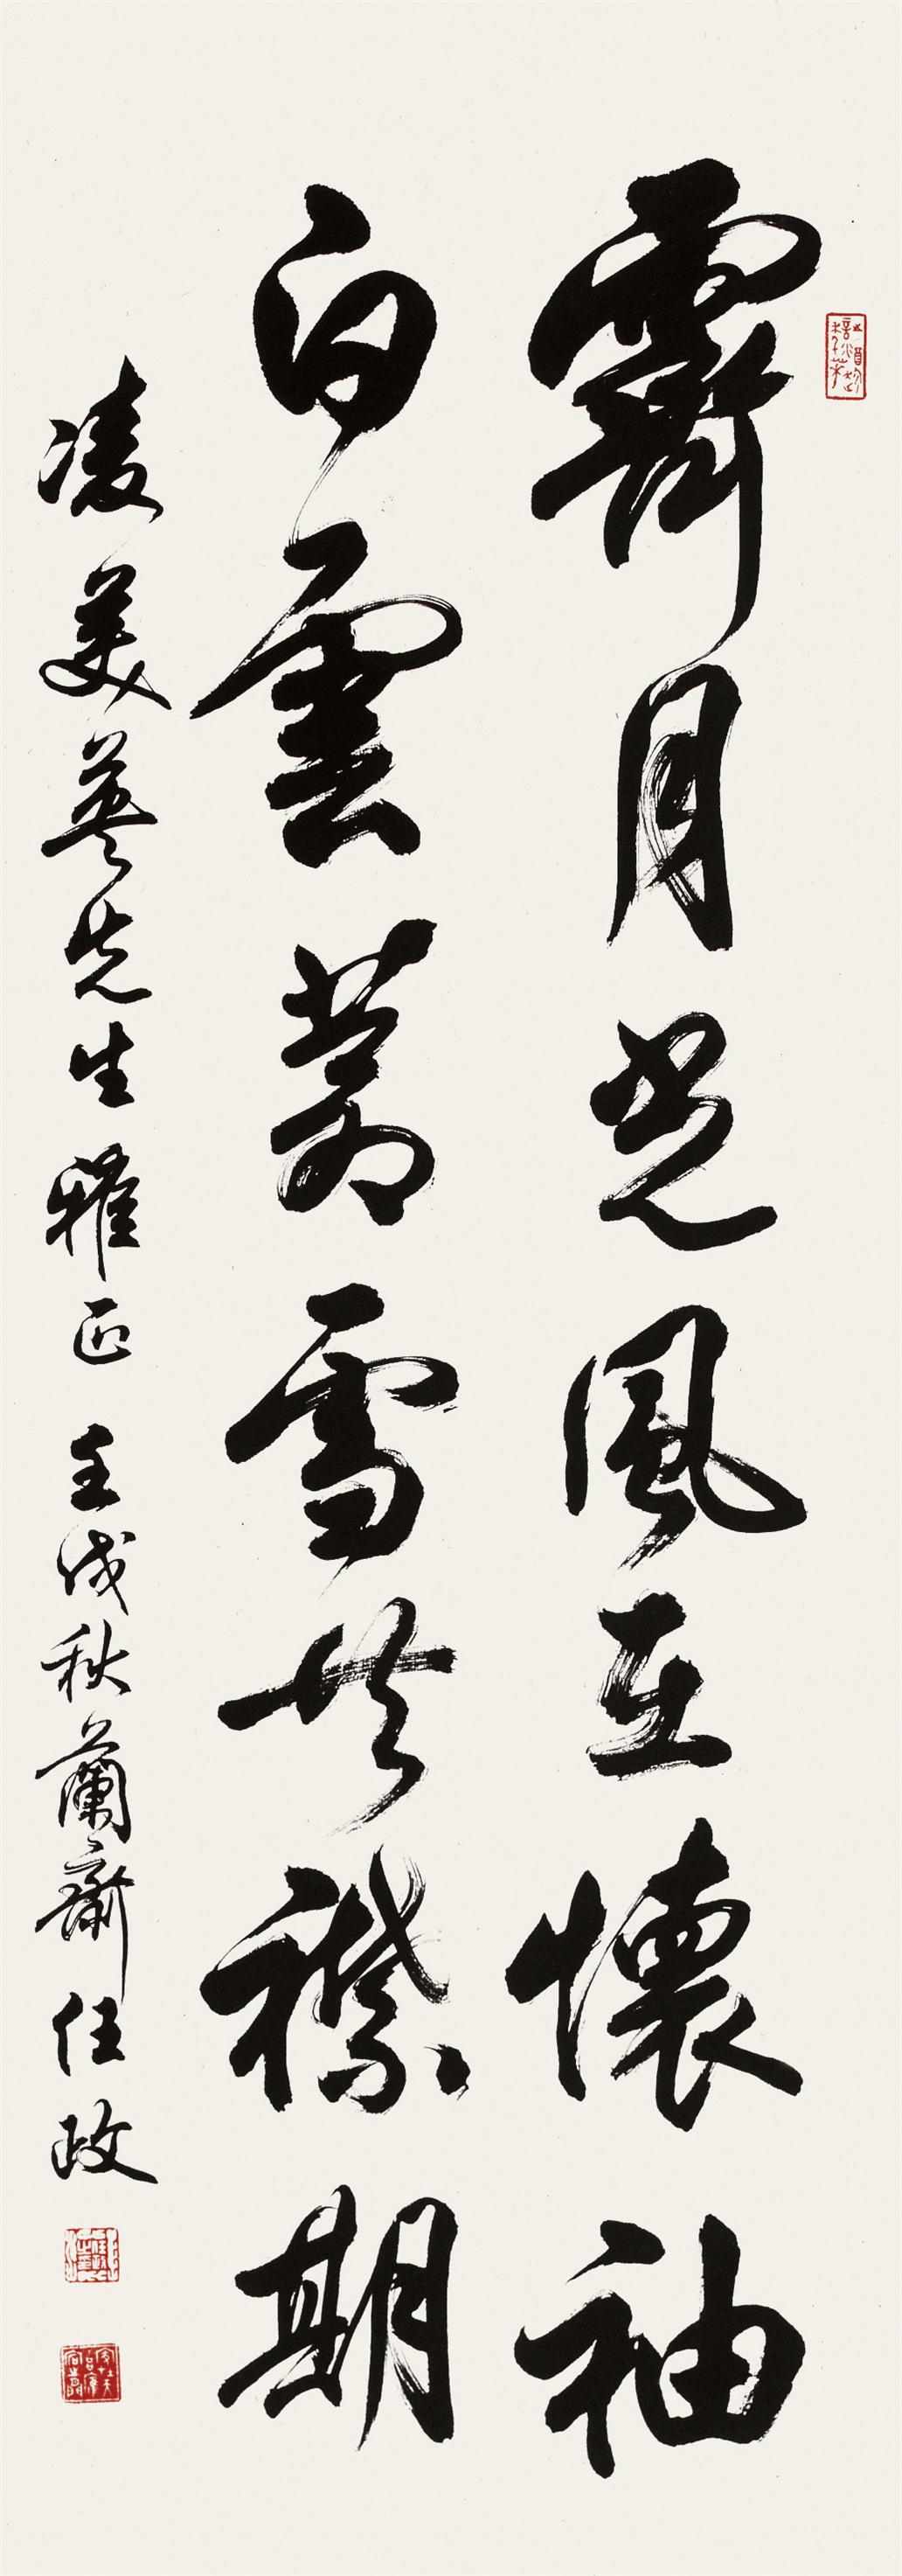 霽月光風互懷袖
白雲芳雪共襟期
凌美英先生雅正 壬戌秋蘭齋任政